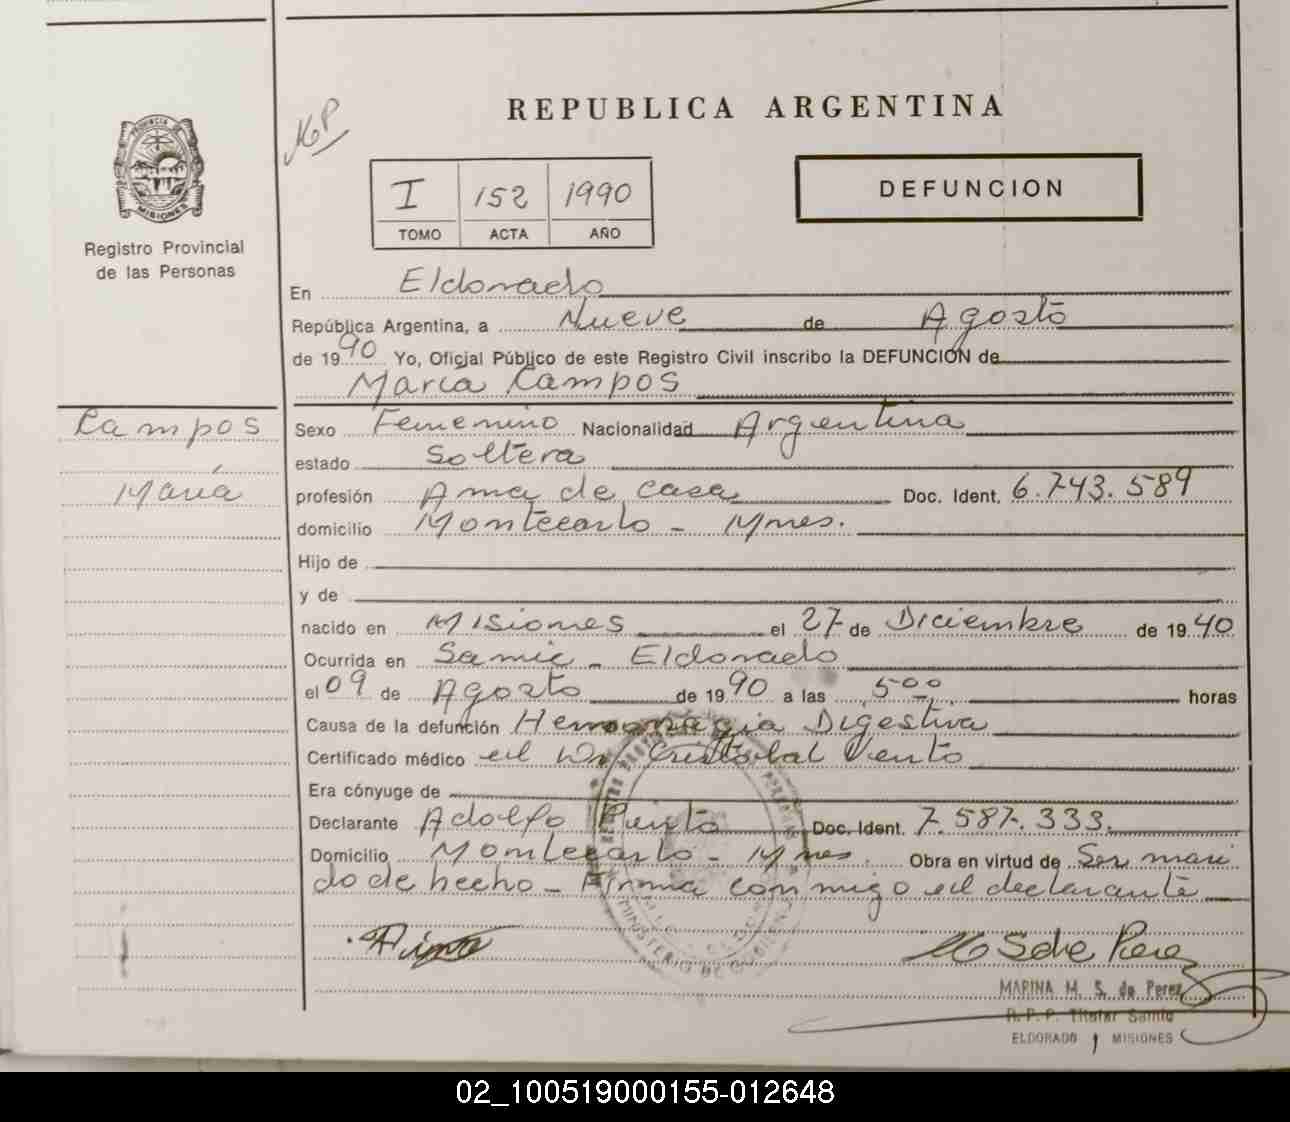 REPUBLICA ARGENTINA
PROVINCIA DE
MISIONES
Registro Provincial
de las Personas
I 152 1990
TOMO ACTA AÑO
DEFUNCION
En Eldorado
República Argentina, a Nueve de Agosto
de 1990 Yo, Oficial Público de este Registro Civil inscribo la DEFUNCION de
María Campos
Campos
María
Sexo Femenino Nacionalidad Argentina
estado Soltera
profesión Ama de casa Doc. Ident. 6.743.589
domicilio Montecarlo - Mnes.
Hijo de
y de
nacido en Misiones el 27 de Diciembre de 1940
Ocurrida en Samic - Eldorado
el 09 de Agosto de 1990 a las 5 00 horas
Causa de la defunción Hemorragia Digestiva
Certificado médico el Dr Cristobal Vento
Era cónyuge de
Declarante Adolfo Pinto Doc. Ident. 7.587.333.
Domicilio Montecarlo - Mnes. Obra en virtud de Ser mari
do de hecho - Firma conmigo el declarante
MINISTERIO DE GOBIERNO
MARINA M. S. de Perez
R. P. P. Titular Samic
ELDORADO MISIONES
02_100519000155-012648